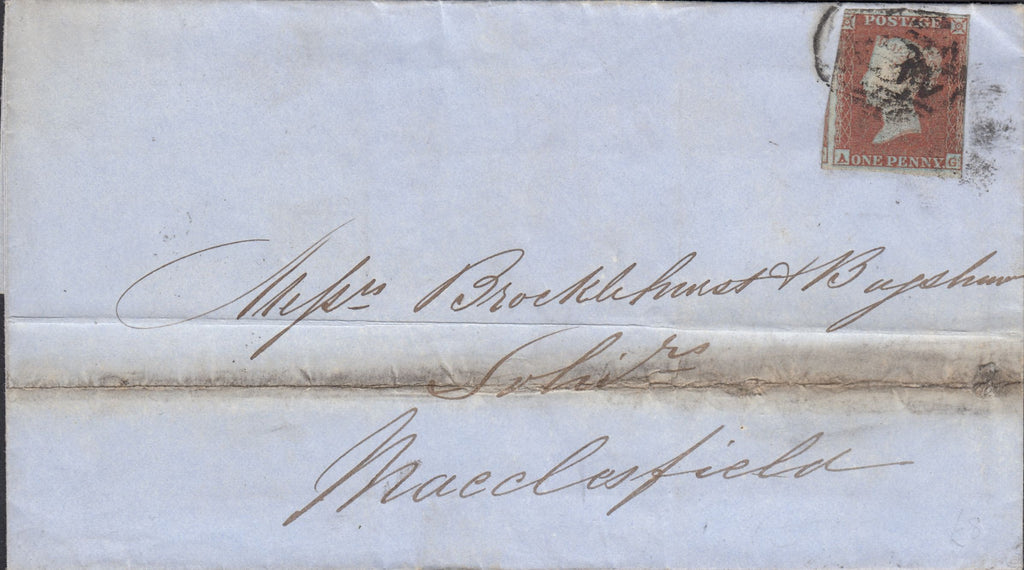 POSTAGE
A ONE PENNY G
Messrs Brocklehurst & Bagshaw
Solrs
Macclesfield